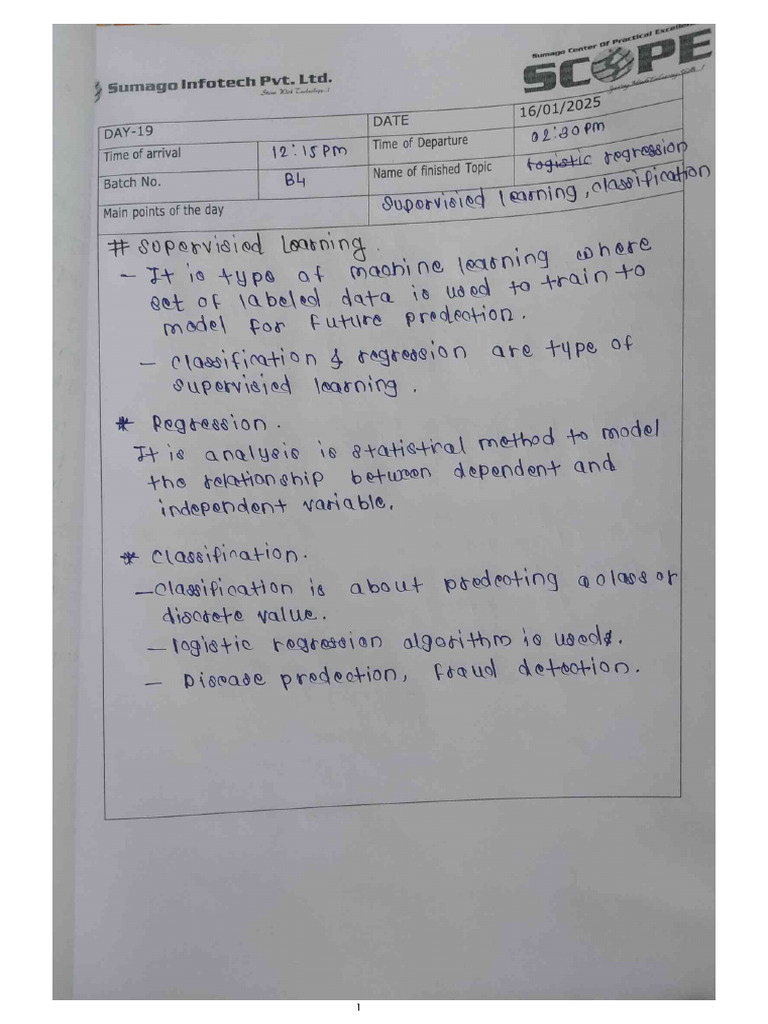 Sumago Center Of Practical Excellen
SCOPE
Sumago Infotech Pvt. Ltd.
DAY-19 DATE 16/01/2025
Time of arrival 12:15 PM Time of Departure 02:30 PM
Batch No. B4 Name of finished Topic logistic regression
Main points of the day Supervisied learning, classification
# Supervisied Learning.
- It is type of machine learning where
set of labeled data is used to train to
model for future predection.
- Classification & regression are type of
supervisied learning.
* Regression.
It is analysis is statistral method to model
the relationship between dependent and
independent variable.
* Classification.
- Classification is about predecting a class or
discrete value.
- logistic regression algorithm is used.
- Disease predection, fraud detection.
1